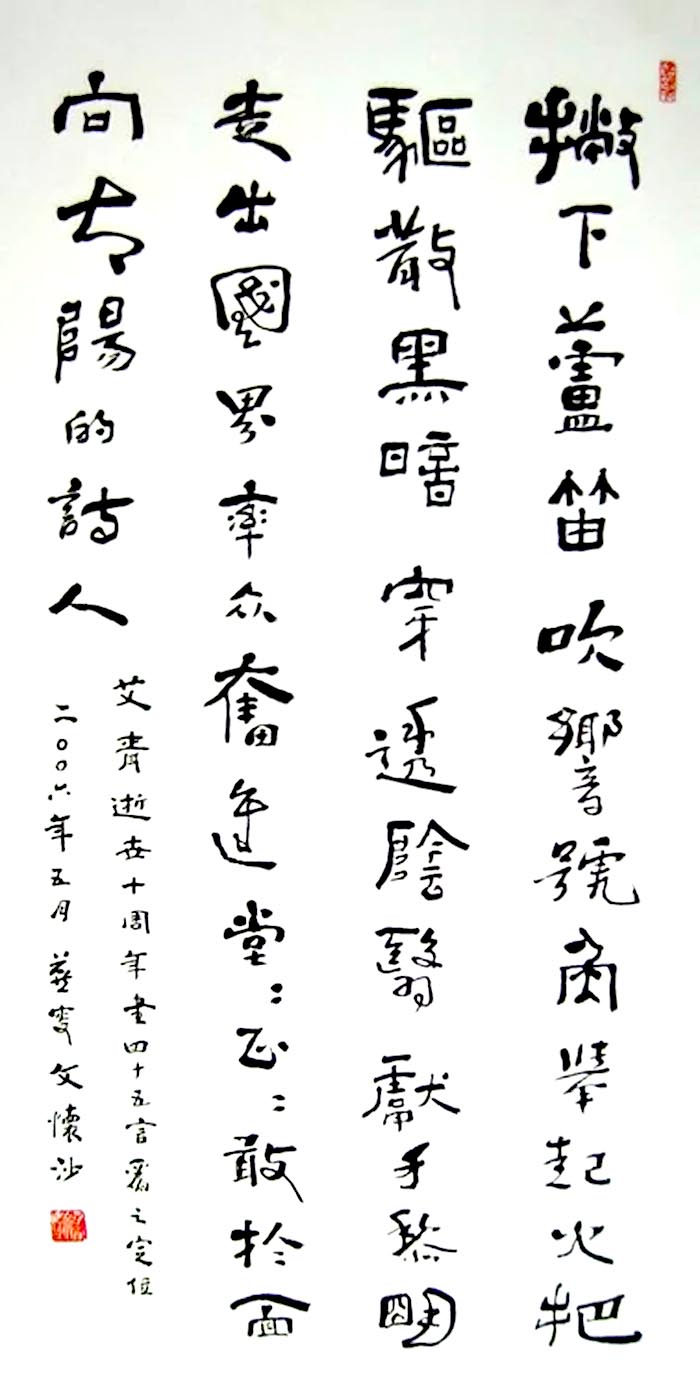 撇下蘆笛吹響號角舉起火把
驅散黑暗穿透陰翳獻于黎明
走出國界率众奮進堂:正:敢於面
向太陽的詩人
艾青逝世十周年書四十五言爲之定位
二〇〇六年五月燕叟文懷沙